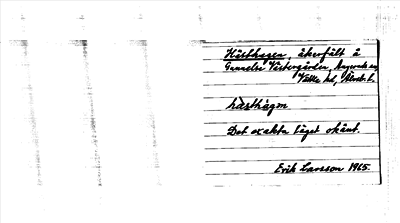 Hästhagen, åkerfält å
Gunnelse Västergården, Angereds sn,
Vättle hd, Älvsb. l.
hàsthàgɷn
Det exakta läget okänt.
Erik Larsson 1965.